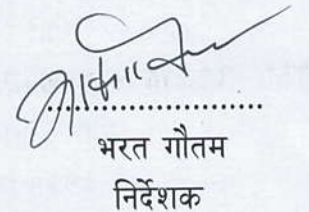 ........................
भरत गौतम
निर्देशक